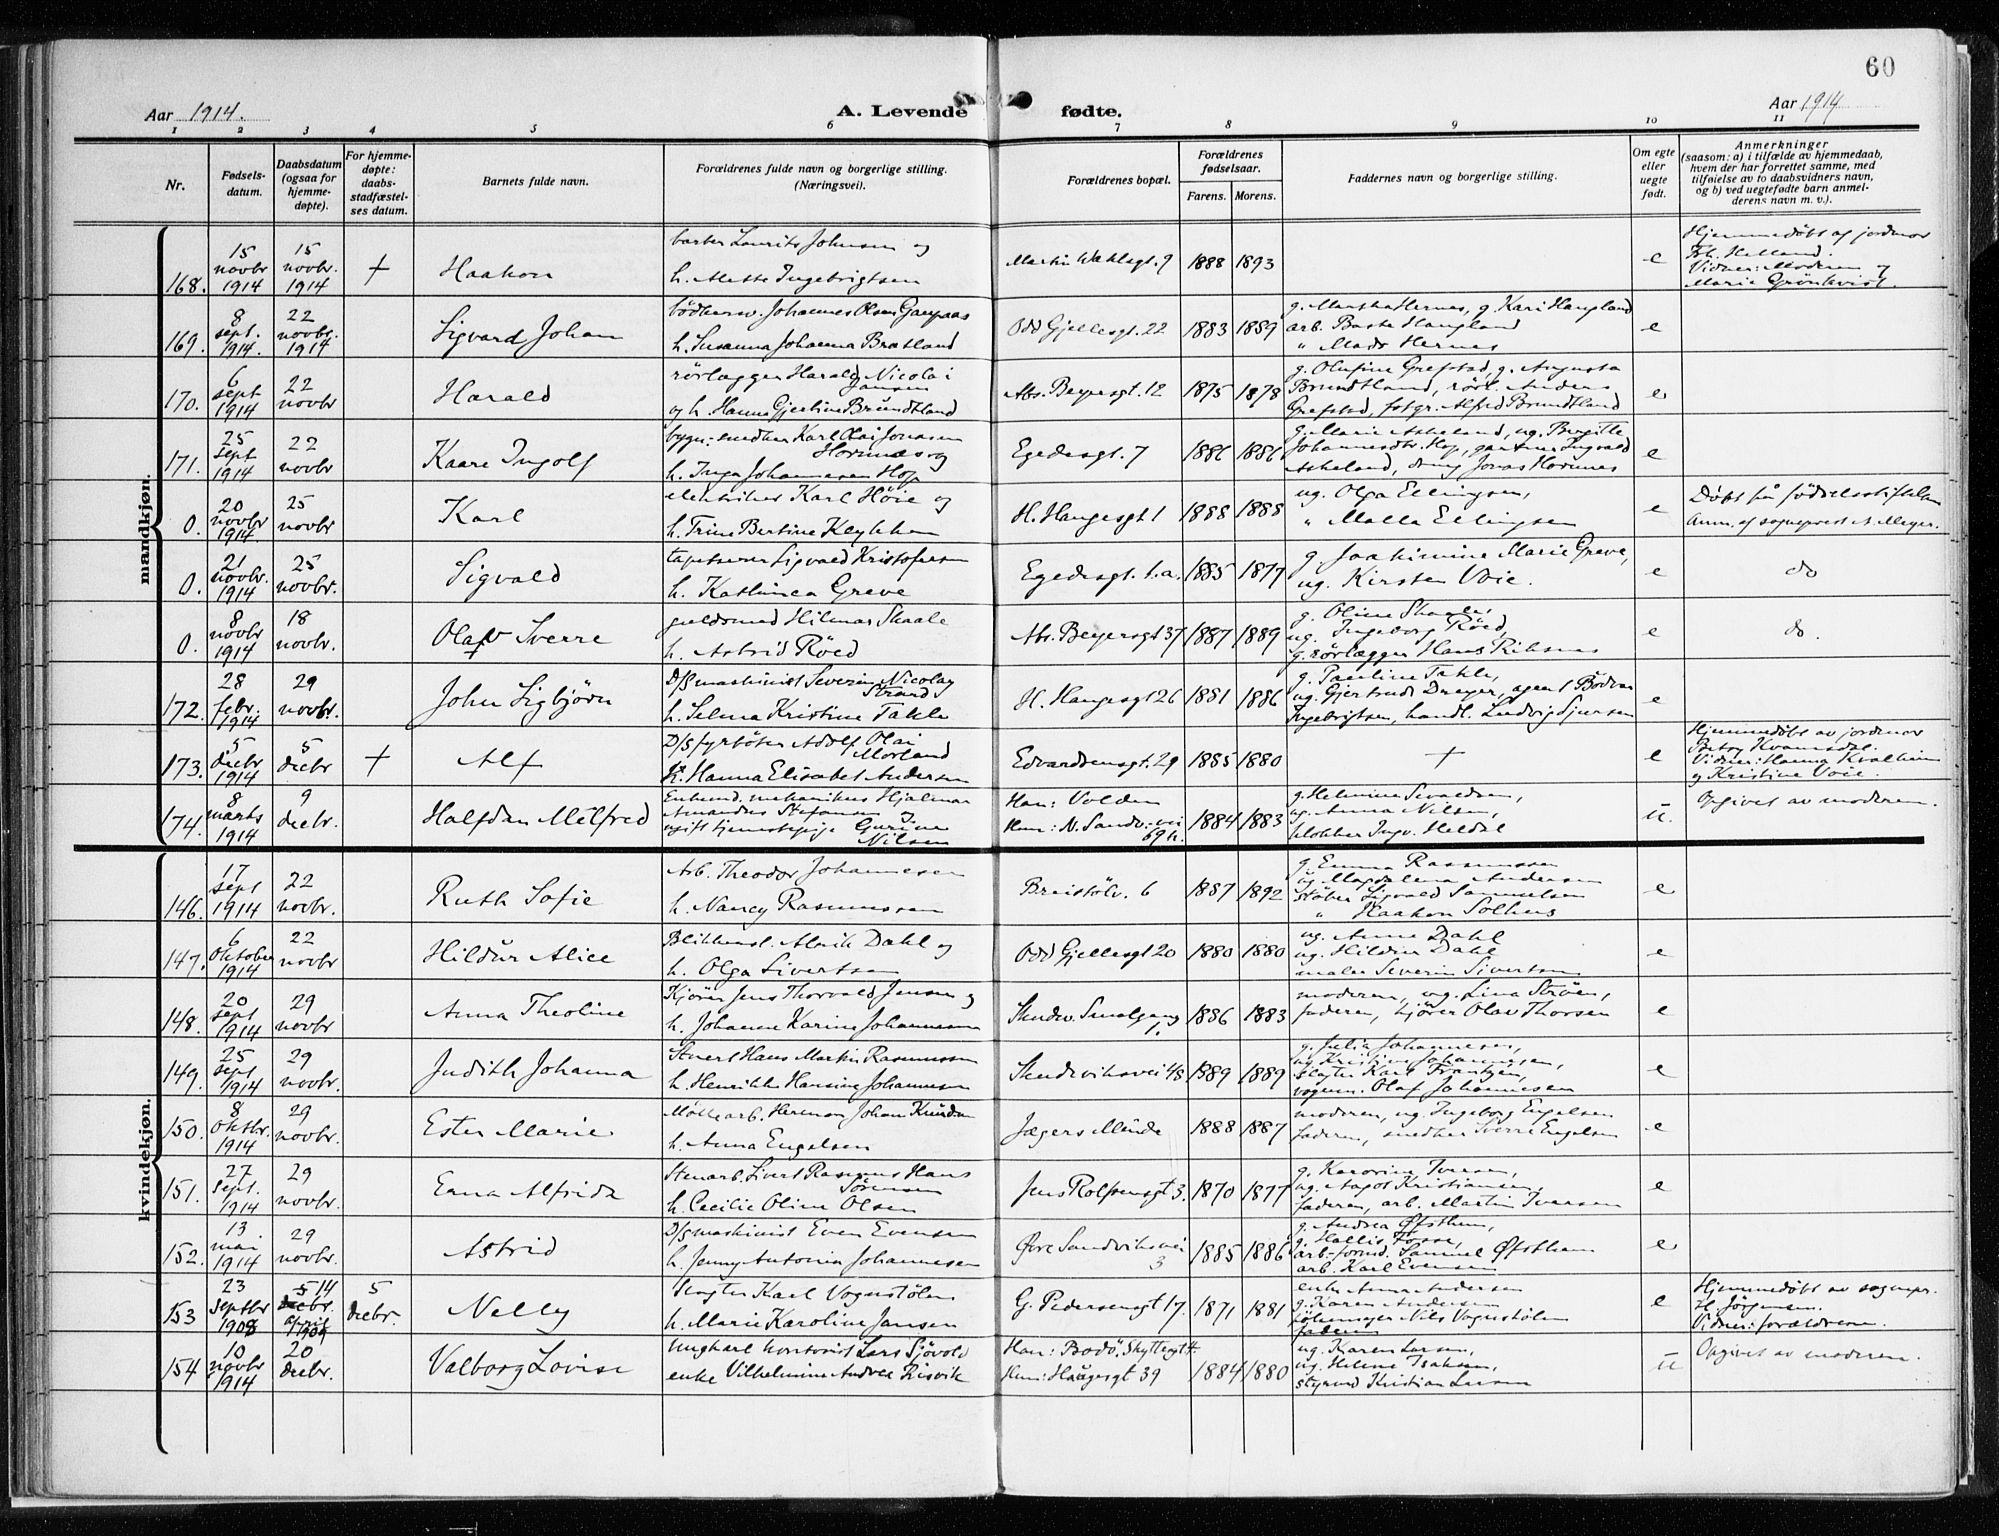 60
Aar 1914. A. Levende fødte. Aar 1914
1 2 3 4 5 6 7 8 9 10 11
Nr.
Fødsels-
datum.
Daabsdatum
(ogsaa for
hjemme-
døpte).
For hjemme-
døpte:
daabs-
stadfæstel-
ses datum.
Barnets fulde navn.
Forældrenes fulde navn og borgerlige stilling.
(Næringsvei).
Forældrenes bopæl.
Forældrenes
fødselsaar.
Farens. Morens.
Faddernes navn og borgerlige stilling.
Om egte
eller
uegte
født.
Anmerkninger
(saasom: a) i tilfælde av hjemmedaab,
hvem der har forrettet samme, med
tilføielse av to daabsvidners navn,
og b) ved uegtefødte barn anmel-
derens navn m. v.).
mandkjøn.
168. 15 novbr 1914 15 novbr. 1914 + Haakon
barber Laurits Johnsen og
h. Mette Ingebrigtsen
Martin Wahlsgt. 9 1888 1893 e
Hjemmedøbt af jordmor
Frk. Helland.
Vidner: Moderen og
Marie Grönkvist.
169. 8 sept. 1914. 22 novbr. 1914 Sigvard Johan
bødkersv. Johannes Olsen
h. Susanna Johanna Bratland
Odd Gjellesgt. 22 1883 1889
g. Martha Hernes, g. Kari Haugland
arb. Haugland
" Mads Hernes
e
170. 6 sept 1914 22 novbr Harald
rørlægger Harald Nicolai
Jansen
og h. Hanna Gjertine Brundtland
Abs. Beyersgt. 12 1875 1878
g. Olufine Grefstad, g. Augusta
Brundtland, rørl. Anders
Grefstad, fotgr. Alfred Brundtland
e
171. 25 sept 1914 22 novbr Kaare Ingolf
bygn: snedker Karl Olai Jonasen
Hornnæs og
h. Inga Johannesen Hop
Egedesgt. 7 1886 1886
g. Marie Askeland, ug. Bergitte
Johannesdtr. Hop, gartner Ingvald
Askeland, Jonas Hornnes
e
0. 20 novbr 1914 25 novbr. Karl
elektriker Karl Höie og
h. Trine Bertine
H. Haugesgt 1 1888 1888
ug. Olga Ellingsen,
" Malla Ellingsen
e
Døbt på fødselsstiftelsen
Anm. af sogneprest A. Meyer.
0. 21 novbr. 1914 25 novbr. Sigvald
tapetserer Sigvald Kristofersen
h. Kathinca Greve
Egedesgt. 1.a. 1885 1877
g. Joakimine Marie Greve,
ug. Kirsten Voie.
e do
0. 8 novbr 1914 18 novbr. Olaf Sverre
guldsmed Hilmar Skaale
h. Astrid Røed
Abs. Beyersgt 37 1887 1889
g. Oline Skaale,
ug. Ingeborg Røed,
g. rørlægger Hans
e do.
172. 28 febr. 1914 29 novbr. John Sigbjörn
D/S maskinist Severin Nicolay
Strand
h. Selma Kristine Takle
H. Haugesgt 26 1881 1886
g. Pauline Takle,
ug. Gjertrud Dreyer, agent Bödvar
Ingebrigtsen, handl. Ludvig Sjursen
e
173. 5 decbr 1914 5 decbr + Alf
D/S fyrböter Adolf Olai
Morland
h. Hanna Elisabet Andersen
Edvardsensgt. 29 1885 1880 + e
Hjemmedøbt av jordmor
Betsy Kvamsdal.
Vidner: Hanna Kvalheim
og Kristine Voie.
174. 8 marts 1914 9 decbr. Halfdan Melfred
Enkemd. mekanikus Hjalmar
Amandus Stefansen og
ugift tjenestepige Gurine
Nilsen
Han: Volden
Hun: N. Sandv.-vei
69 h.
1884 1883
g. Helmine Sivaldsen,
ug. Anna Nilsen,
klokker Ingv. Heldal
u. Opgivet av moderen.
kvindekjøn.
146. 17 sept 1914 22 novbr. Ruth Sofie
Arb. Theodor Johannesen
h. Nancy Rasmussen
Breistölv. 6 1887 1892
g. Emma Rasmussen
ug Magdalena Andersen
støber Sigvald Samuelsen
" Haakon Solheus
e
147. 6 Oktober 1914 22 novbr Hildur Alice
Blikkensl. Alrik Dahl og
h. Olga Sivertsen
Odd Gjellesgt 20 1880 1880
ug. Anna Dahl
ug. Hildur Dahl
maler Severin Sivertsen
e
148. 20 sept 1914 29 novbr Anna Theoline
Kjörer Jens Thorvald Jensen og
h. Johanne Karine Johannesen
Skudev. Smalgang
1.
1886 1883
moderen, ug. Lina Ström,
faderen, kjörer Olav Thorsen
e
149. 25 sept 1914 29 novbr. Judith Johanna
Hans Martin Rasmussen
h. Henrikke Hansine Johannesen
Skudeviksvei 48 1889 1889
g. Julia Johannesen,
ug. Kristine Johannesen,
slagter Karl Frantzen,
vognm. Olaf Johannesen
e
150. 8 oktbr. 1914 29 novbr. Ester Marie
Möllearb. Herman Johan Knudsen
h. Anna Engelsen
Jægers Minde 1888 1887
moderen, ug. Ingeborg Engelsen
faderen, snedker Sverre Engelsen
e
151. 27 sept. 1914 29 novbr. Erna Alfrida
Stenarb. Sivert Rasmus Hans
Sörensen
h. Cecilie Oline Olsen
Jens Rolfsensgt 3. 1870 1877
g. Karorine Iversen,
ug. Aagot Kristiansen,
faderen, arb. Martin Iversen
e
152. 13. mai 1914 29 novbr. Astrid
D/S maskinist Even Evensen
h. Jenny Antonia Johannesen
Øvre Sandviksvei
3
1885 1886
g. Andrea Østhem,
g. Hallis Fosse,
arb.-formd. Samuel Østhem
arb. Karl Evensen
e
153 23 Septbr 1908 5 decbr. 14 april 1909 5 decbr. Nelly
Slagter Karl Vognstölen
h. Marie Karoline Jansen
G. Pedersensgt 17. 1871 1881
enke Anna Andersen
g. Karen Andersen
Nils Vognstölen
faderen
e
Hjemmedøbt av sognepr.
H. Jörgensen.
Vidner: forældrene.
154 10 novbr 1914 20 decbr. Valborg Lovise
Ungkarl kontorist Lars Sjövold
enke Vilhelmine Andrea Risvik
Han: Bodö, Skyttergt 4.
Hun: Haugesgt 39
1884 1880
ug. Karen Larsen,
ug. Helene Isaksen,
styrmd Kristian Larsen
u Opgivet av moderen.